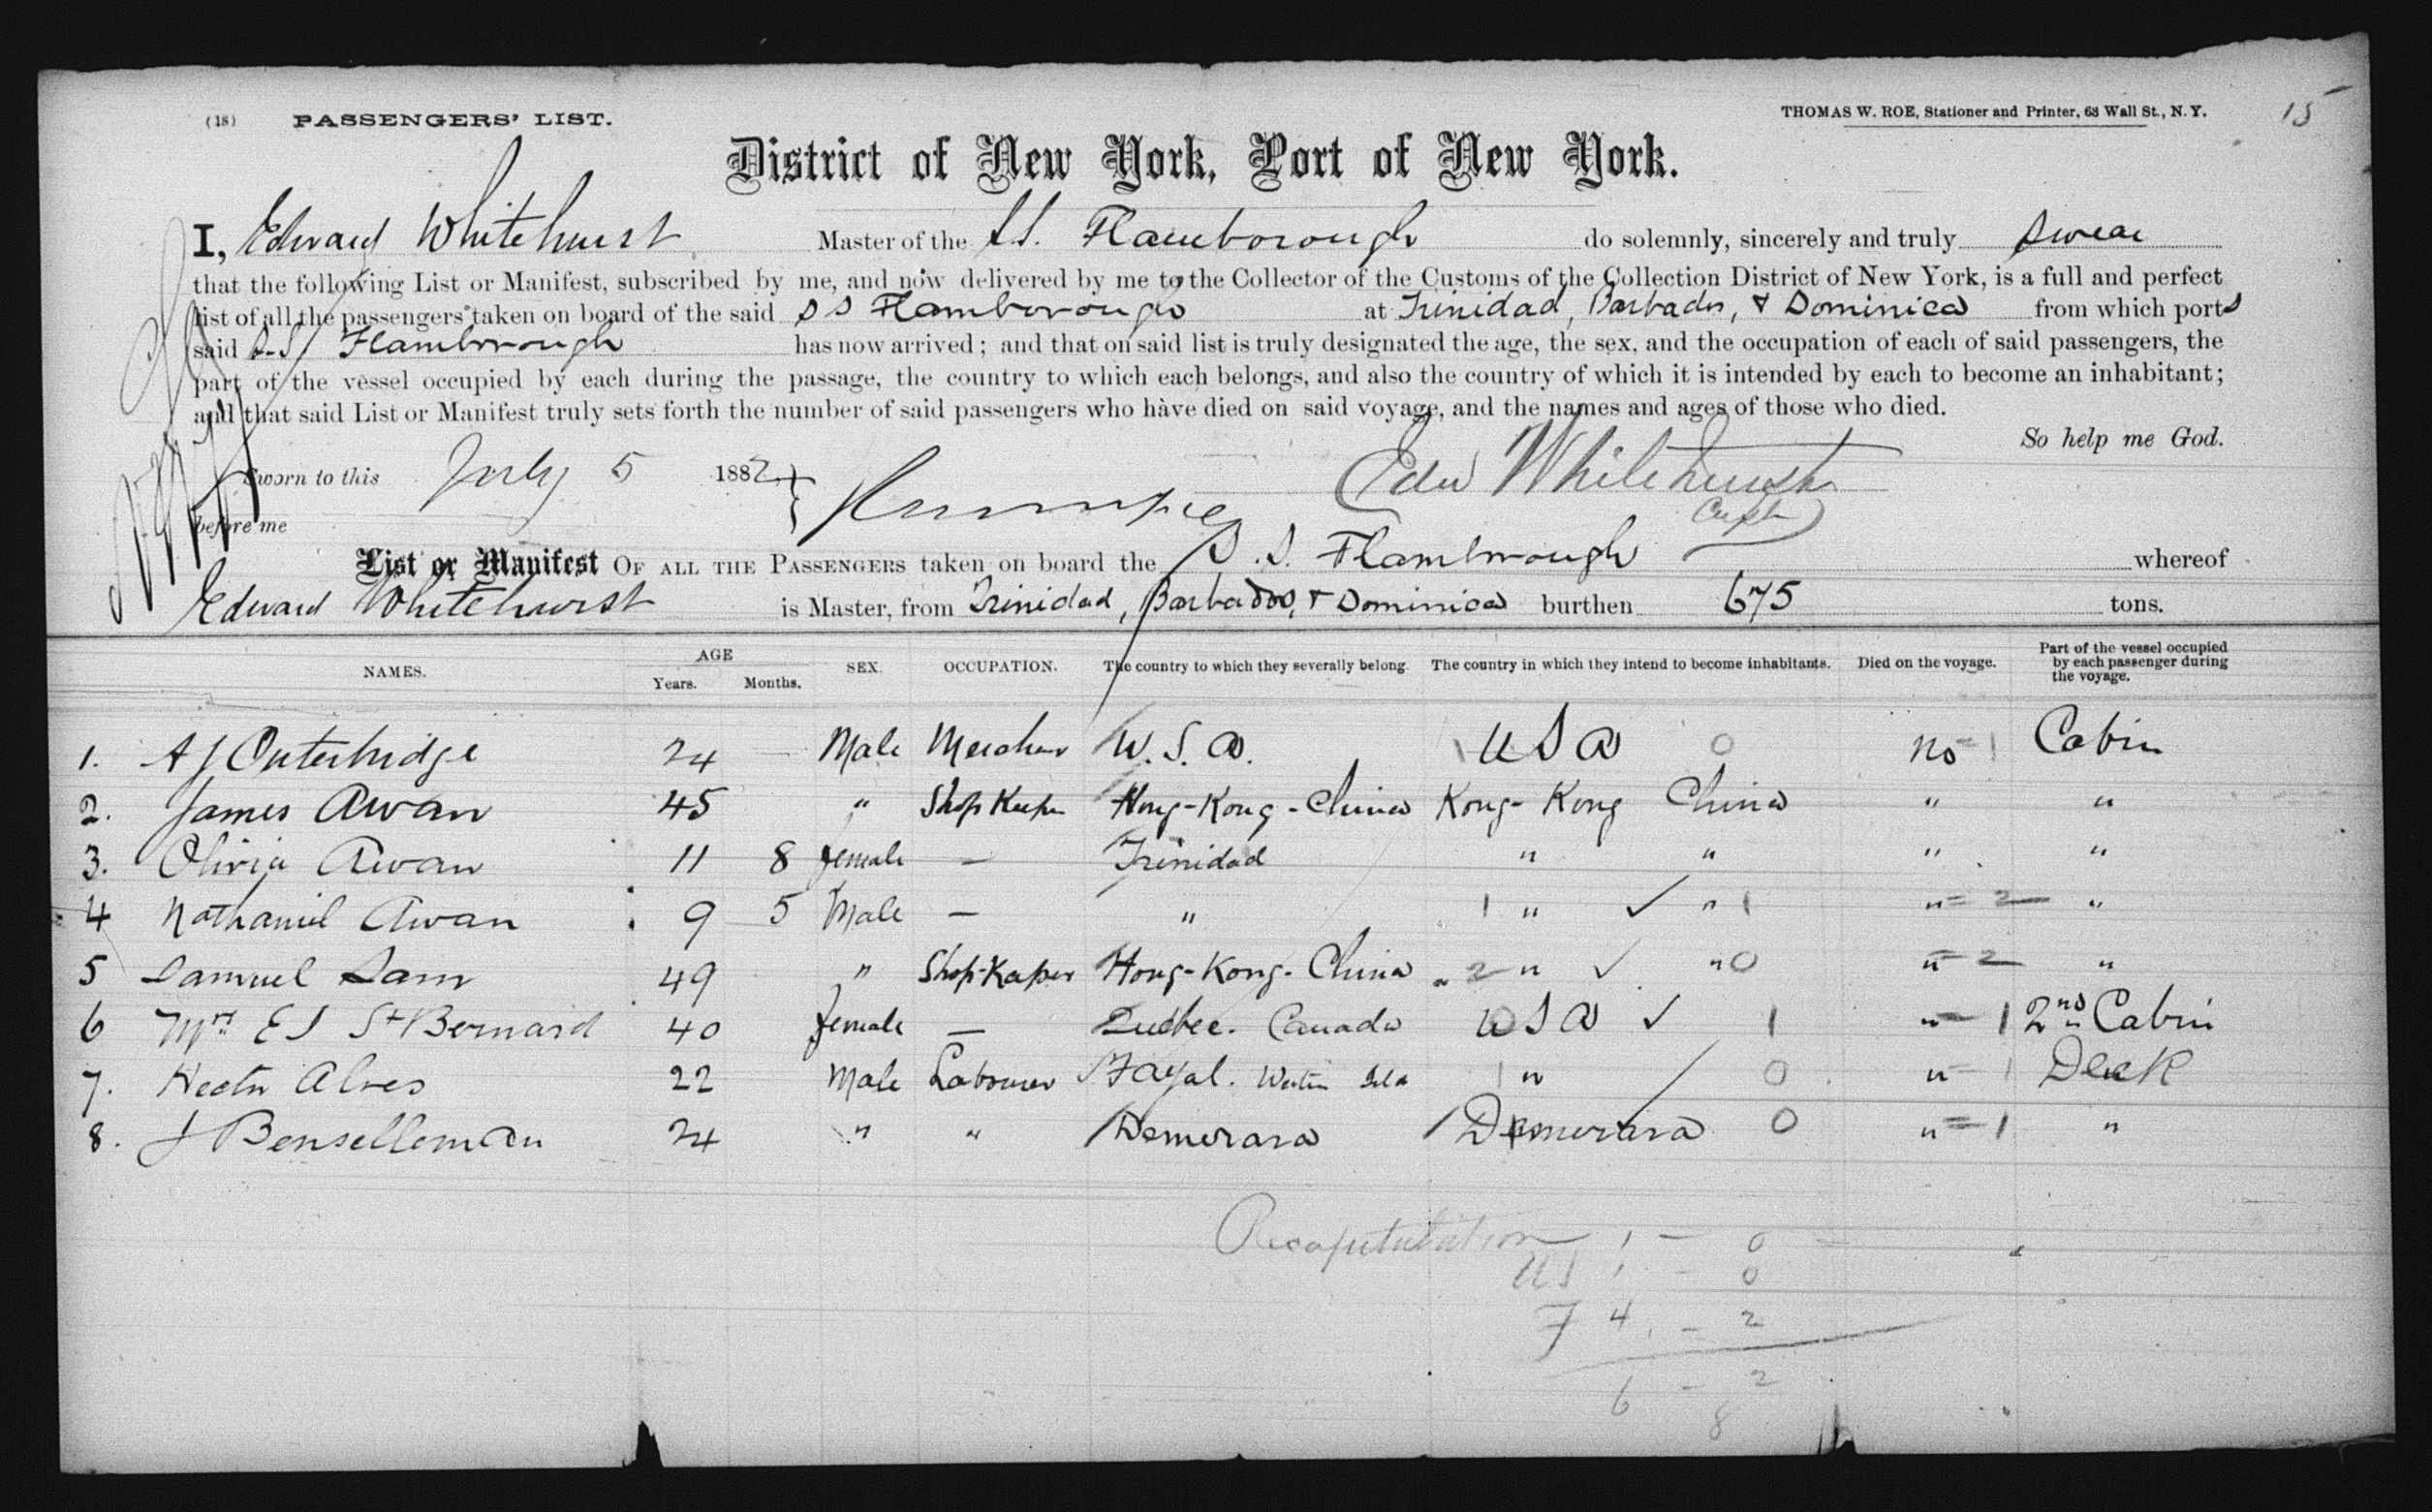 (18) PASSENGERS' LIST. THOMAS W. ROE, Stationer and Printer, 63 Wall St., N. Y. 15
District of New York, Port of New York.
I, Edward Whitehurst Master of the S.S. Flamborough do solemnly, sincerely and truly swear
that the following List or Manifest, subscribed by me, and now delivered by me to the Collector of the Customs of the Collection District of New York, is a full and perfect
list of all the passengers taken on board of the said S S Flamborough at Trinidad, Barbados, & Dominica from which ports
said S.S. Flamborough has now arrived; and that on said list is truly designated the age, the sex, and the occupation of each of said passengers, the
part of the vessel occupied by each during the passage, the country to which each belongs, and also the country of which it is intended by each to become an inhabitant;
and that said List or Manifest truly sets forth the number of said passengers who have died on said voyage, and the names and ages of those who died.
So help me God.
Sworn to this July 5 1882 Edw Whitehurst
before me Capt
List or Manifest OF ALL THE PASSENGERS taken on board the S.S. Flamborough whereof
Edward Whitehurst is Master, from Trinidad, Barbados, & Dominica burthen 675 tons.
NAMES. AGE Years. Months. SEX. OCCUPATION. The country to which they severally belong. The country in which they intend to become inhabitants. Died on the voyage. Part of the vessel occupied by each passenger during the voyage.
1. A J Outerbridge 24 Male U.S.A. 1 U S A 0 No - 1 Cabin
2. James Awan 45 " Shop Keeper Hong-Kong-China Kong-Kong China " "
3. Olivia Awan 11 8 female — Trinidad " " " "
4 Nathaniel Awan 9 5 Male — " 1 " ✓ " 1 " = 2 "
5 Samuel Sam 49 " Shop-Keper Hong-Kong-China 2 " ✓ " 0 " - 2 "
6 Mrs E J St Bernard 40 female — Quebec. Canada U S A ✓ 1 " - 1 2nd Cabin
7. Hector Alves 22 Male Labourer Fayal. Western Isls 1 " / 0 " - 1 Deck
8. J Benselleman 24 " " Demerara Demerara 0 " = 1 "
Recapitulation 1 - 0
US 1 - 0
F 4 - 2
6 - 2
8